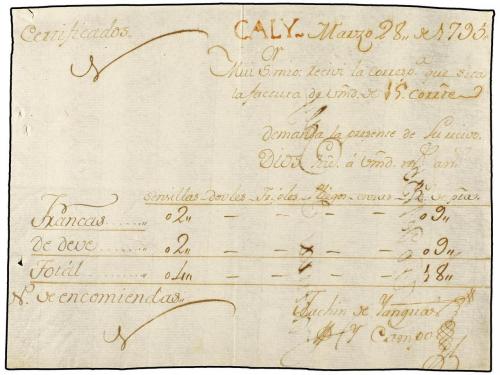 Certificados. CALY„ Marzo 28„ de 1795„
Mui S.mio. recivi la corresp.a que cita
la factura de Vmd. de 15. corr.te
demanda la presense de su recivo.
Dios gue. á Vmd. m.s an.s
sencillas dovles Triples
Francas „ 02„ — — — — — 09„
de deve „ 02„ — — — — — 09„
Totál „ 04„ — — — — — 18„
N.o de encomiendas„
de Yanguas
y Campo